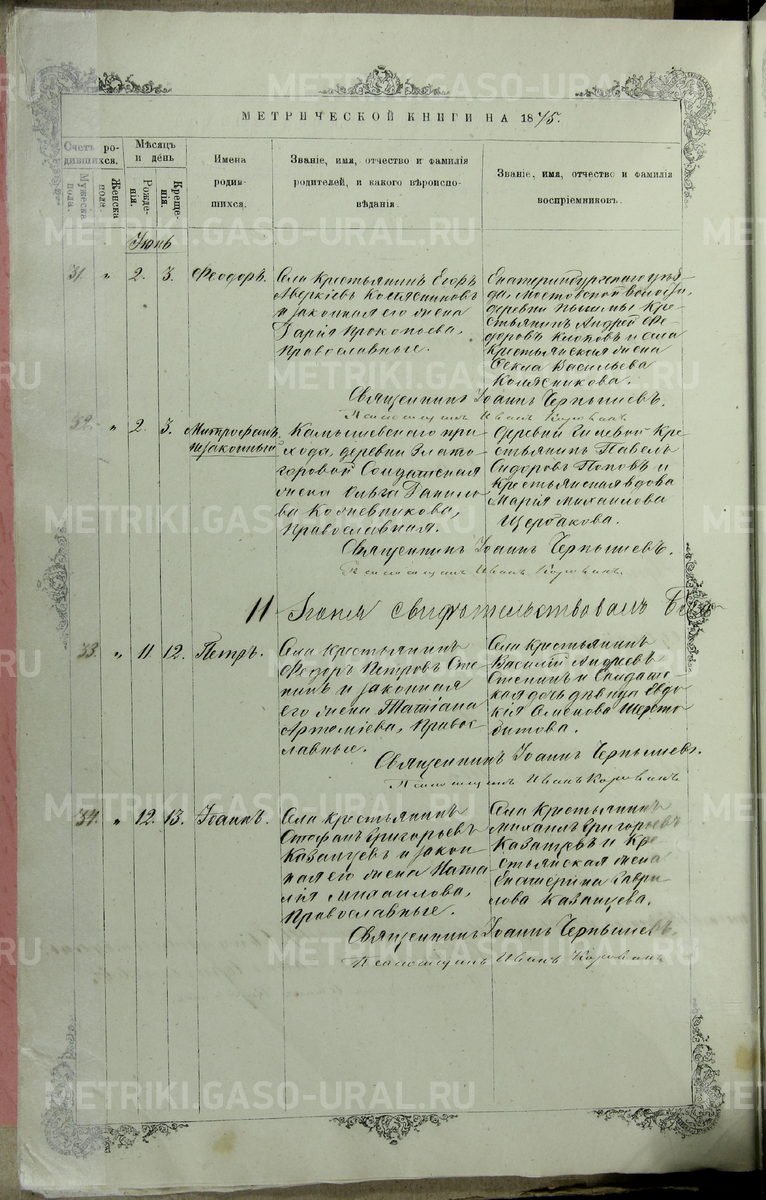 МЕТРИЧЕСКОЙ КНИГИ НА 1875.
Счетъ родившихся.
Мужеска пола.
Женска пола.
Мѣсяцъ и день
Рожденія.
Крещенія.
Имена родившихся.
Званіе, имя, отчество и фамилія родителей, и какого вѣроисповѣданія.
Званіе, имя, отчество и фамилія воспріемниковъ.
Іюнь
31. " 2. 3. Ѳеодоръ.
Села крестьянинъ Егоръ
Аверкіевъ Колясниковъ
и законная его жена
Дарія Прокопьева,
Православные.
Екатеринбургскаго уѣз-
да, Мостовской волости,
деревни Пышмы Кре-
стьянинъ Андрей Ѳе-
доровъ Клоповъ и села
Крестьянская жена
Ѳекла Васильева
Колясникова.
Священникъ Іоаннъ Чернышевъ.
Псаломщикъ Иванъ Коровинъ.
32. " 2. 3. Митрофанъ,
незаконный
Камышевскаго при-
хода, деревни Злато-
горовой Солдатская
жена Ольга Данило-
ва Кожевникова,
Православная.
Деревни Гилевой Кре-
стьянинъ Павелъ
Сидоровъ Поповъ и
Крестьянская вдова
Марія Михаилова
Щербакова.
Священникъ Іоаннъ Чернышевъ.
Псаломщикъ Иванъ Коровинъ.
свидѣтельствовалъ
33. " 11. 12. Петръ.
Села крестьянинъ
Ѳедоръ Петровъ Сте-
пинъ и законная
его жена Татіана
Артеміева, Правос-
лавные.
Села Крестьянинъ
Василій Андреевъ
Степинъ и Солдатс-
кая дочь дѣвица Евдо-
кія Семенова Шерсто-
битова.
Священникъ Іоаннъ Чернышевъ.
Псаломщикъ Иванъ Коровинъ
34. " 12. 13. Іоаннъ.
Села крестьянинъ
Стефанъ Григорьевъ
Казанцевъ и закон-
ная его жена Ната-
лія Михаилова,
Православные.
Села Крестьянинъ
Михаилъ Григорьевъ
Казанцевъ и Кре-
стьянская жена
Екатерина Гаври-
лова Казанцева.
Священникъ Іоаннъ Чернышевъ.
Псаломщикъ Иванъ Коровинъ
METRIKI.GASO-URAL.RU